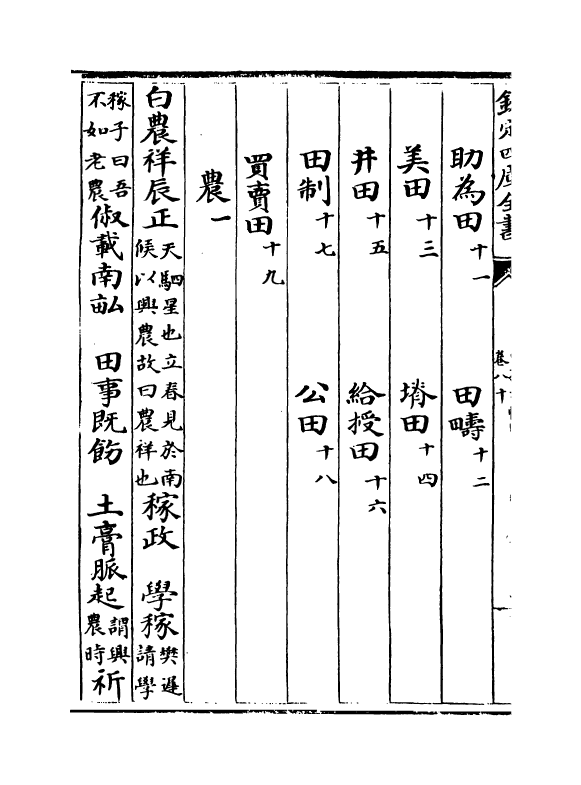 欽定四庫全書
卷八十
助為田十一 田疇十二
美田十三 塉田十四
井田十五 給授田十六
田制十七 公田十八
買賣田十九
農一
白農祥辰正天駟星也立春見於南候以興農故曰農祥也稼政 學稼樊遲請學
稼子曰吾不如老農俶載南畝 田事既飭 土膏脈起謂興農時祈